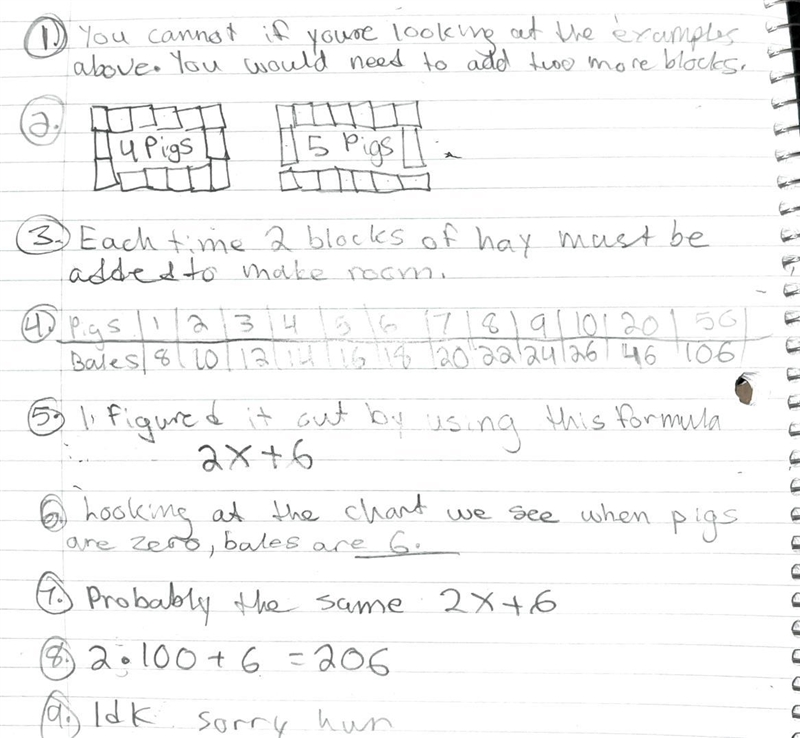 1. You cannot if youre looking at the examples
above. You would need to add two more blocks.
2.
4 Pigs 5 Pigs
3. Each time 2 blocks of hay must be
added to make room.
4. Pigs 1 2 3 4 5 6 7 8 9 10 20 50
Bales 8 10 12 14 16 18 20 22 24 26 46 106
5. I figured it out by using this formula
2x+6
6. Looking at the chart we see when pigs
are zero, bales are 6.
7. Probably the same 2x+6
8. 2•100+6 =206
9. Idk sorry hun